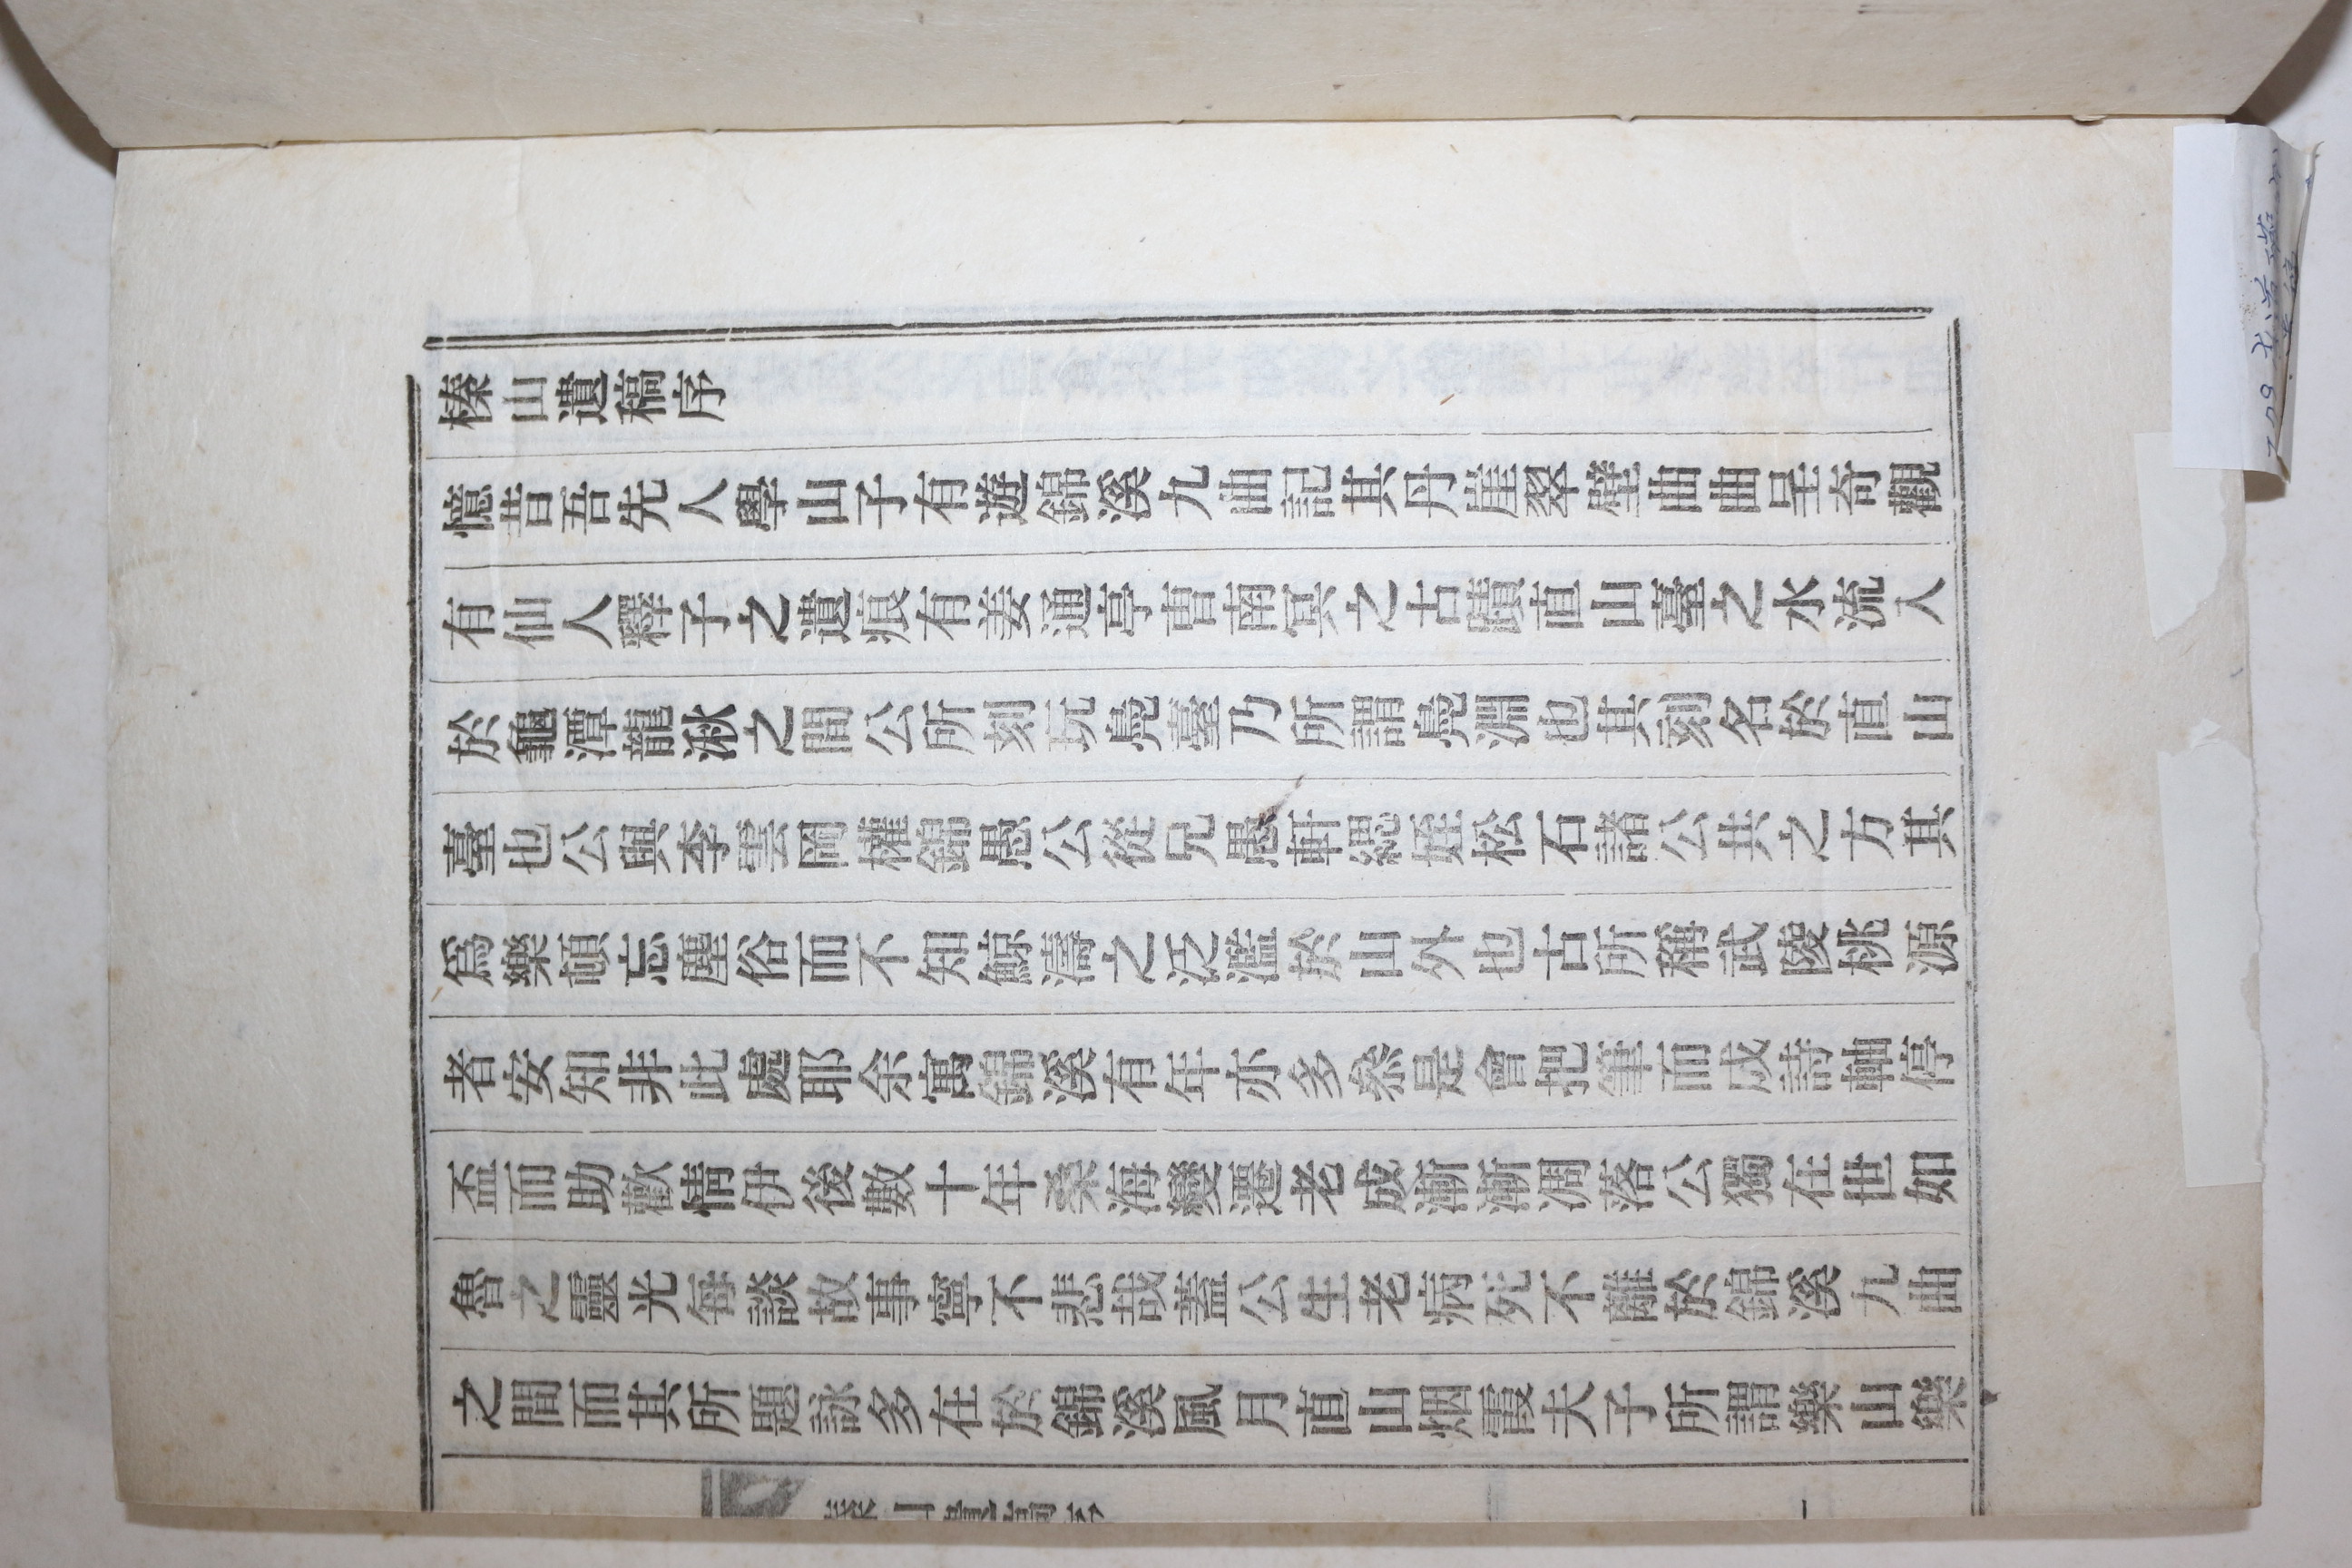 榛山遺稿序
憶昔吾先人學山子有遊錦溪九曲記其丹崖翠壁曲曲呈奇觀
有仙人釋子之遺痕有姜通亭曺南冥之古蹟直山臺之水流入
於龜潭龍湫之間公所刻玩鳧臺乃所謂鳧淵也其刻名於直山
臺也公與李雲岡權錦愚公從兄愚軒緦姪松石諸公共之方其
爲樂頓忘塵俗而不知鯨濤之泛濫於山外也古所稱武陵桃源
者安知非此處耶余寓錦溪有年亦多叅是會把筆而成詩軸停
盃而助歡情伊後數十年桑海變遷老成漸漸凋落公獨在世如
魯之靈光每談故事寧不悲哉蓋公生老病死不離於錦溪九曲
之間而其所題詠多在於錦溪風月直山烟霞夫子所謂樂山樂
榛山遺稿序
一